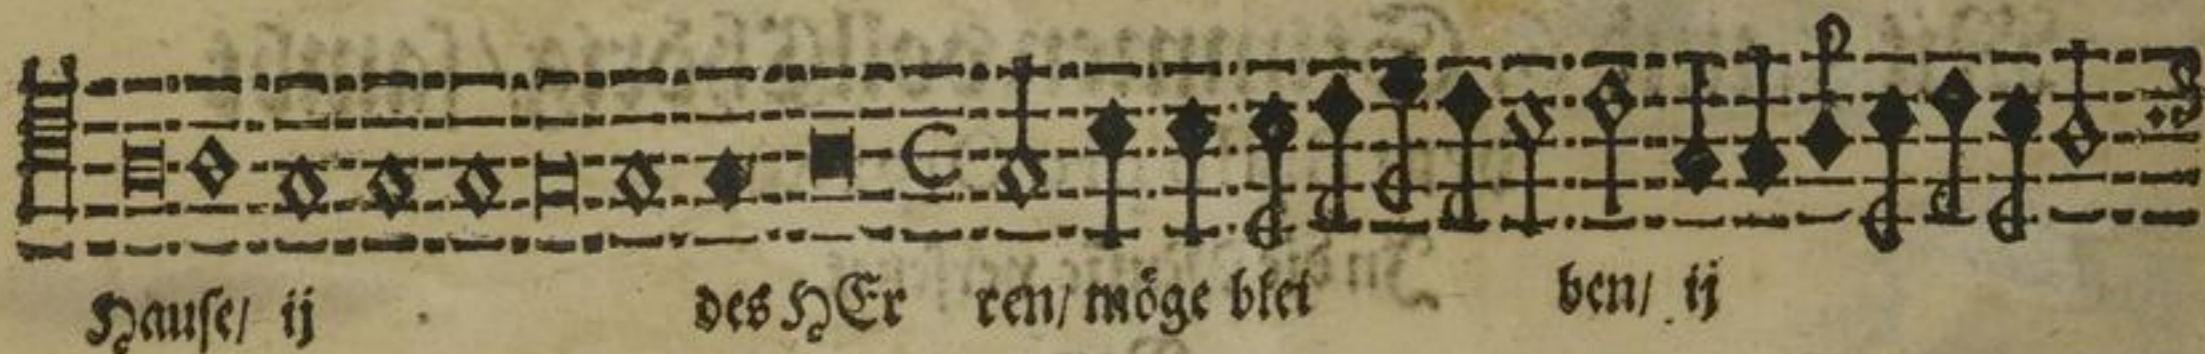 Hause/ ij des HErren/ möge bleiben/ ij